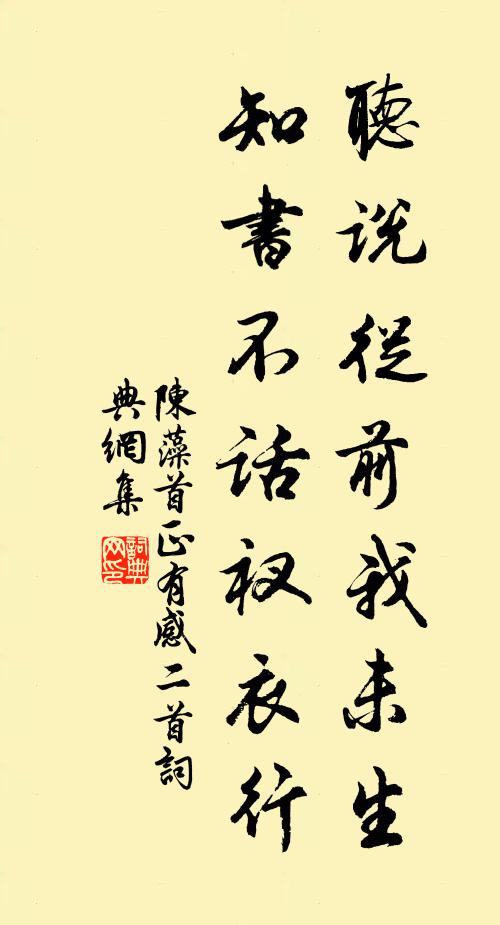 聽說從前我未生
知書不話衩衣行
陳藻首正有感二首詞
典網集
詞典
网印